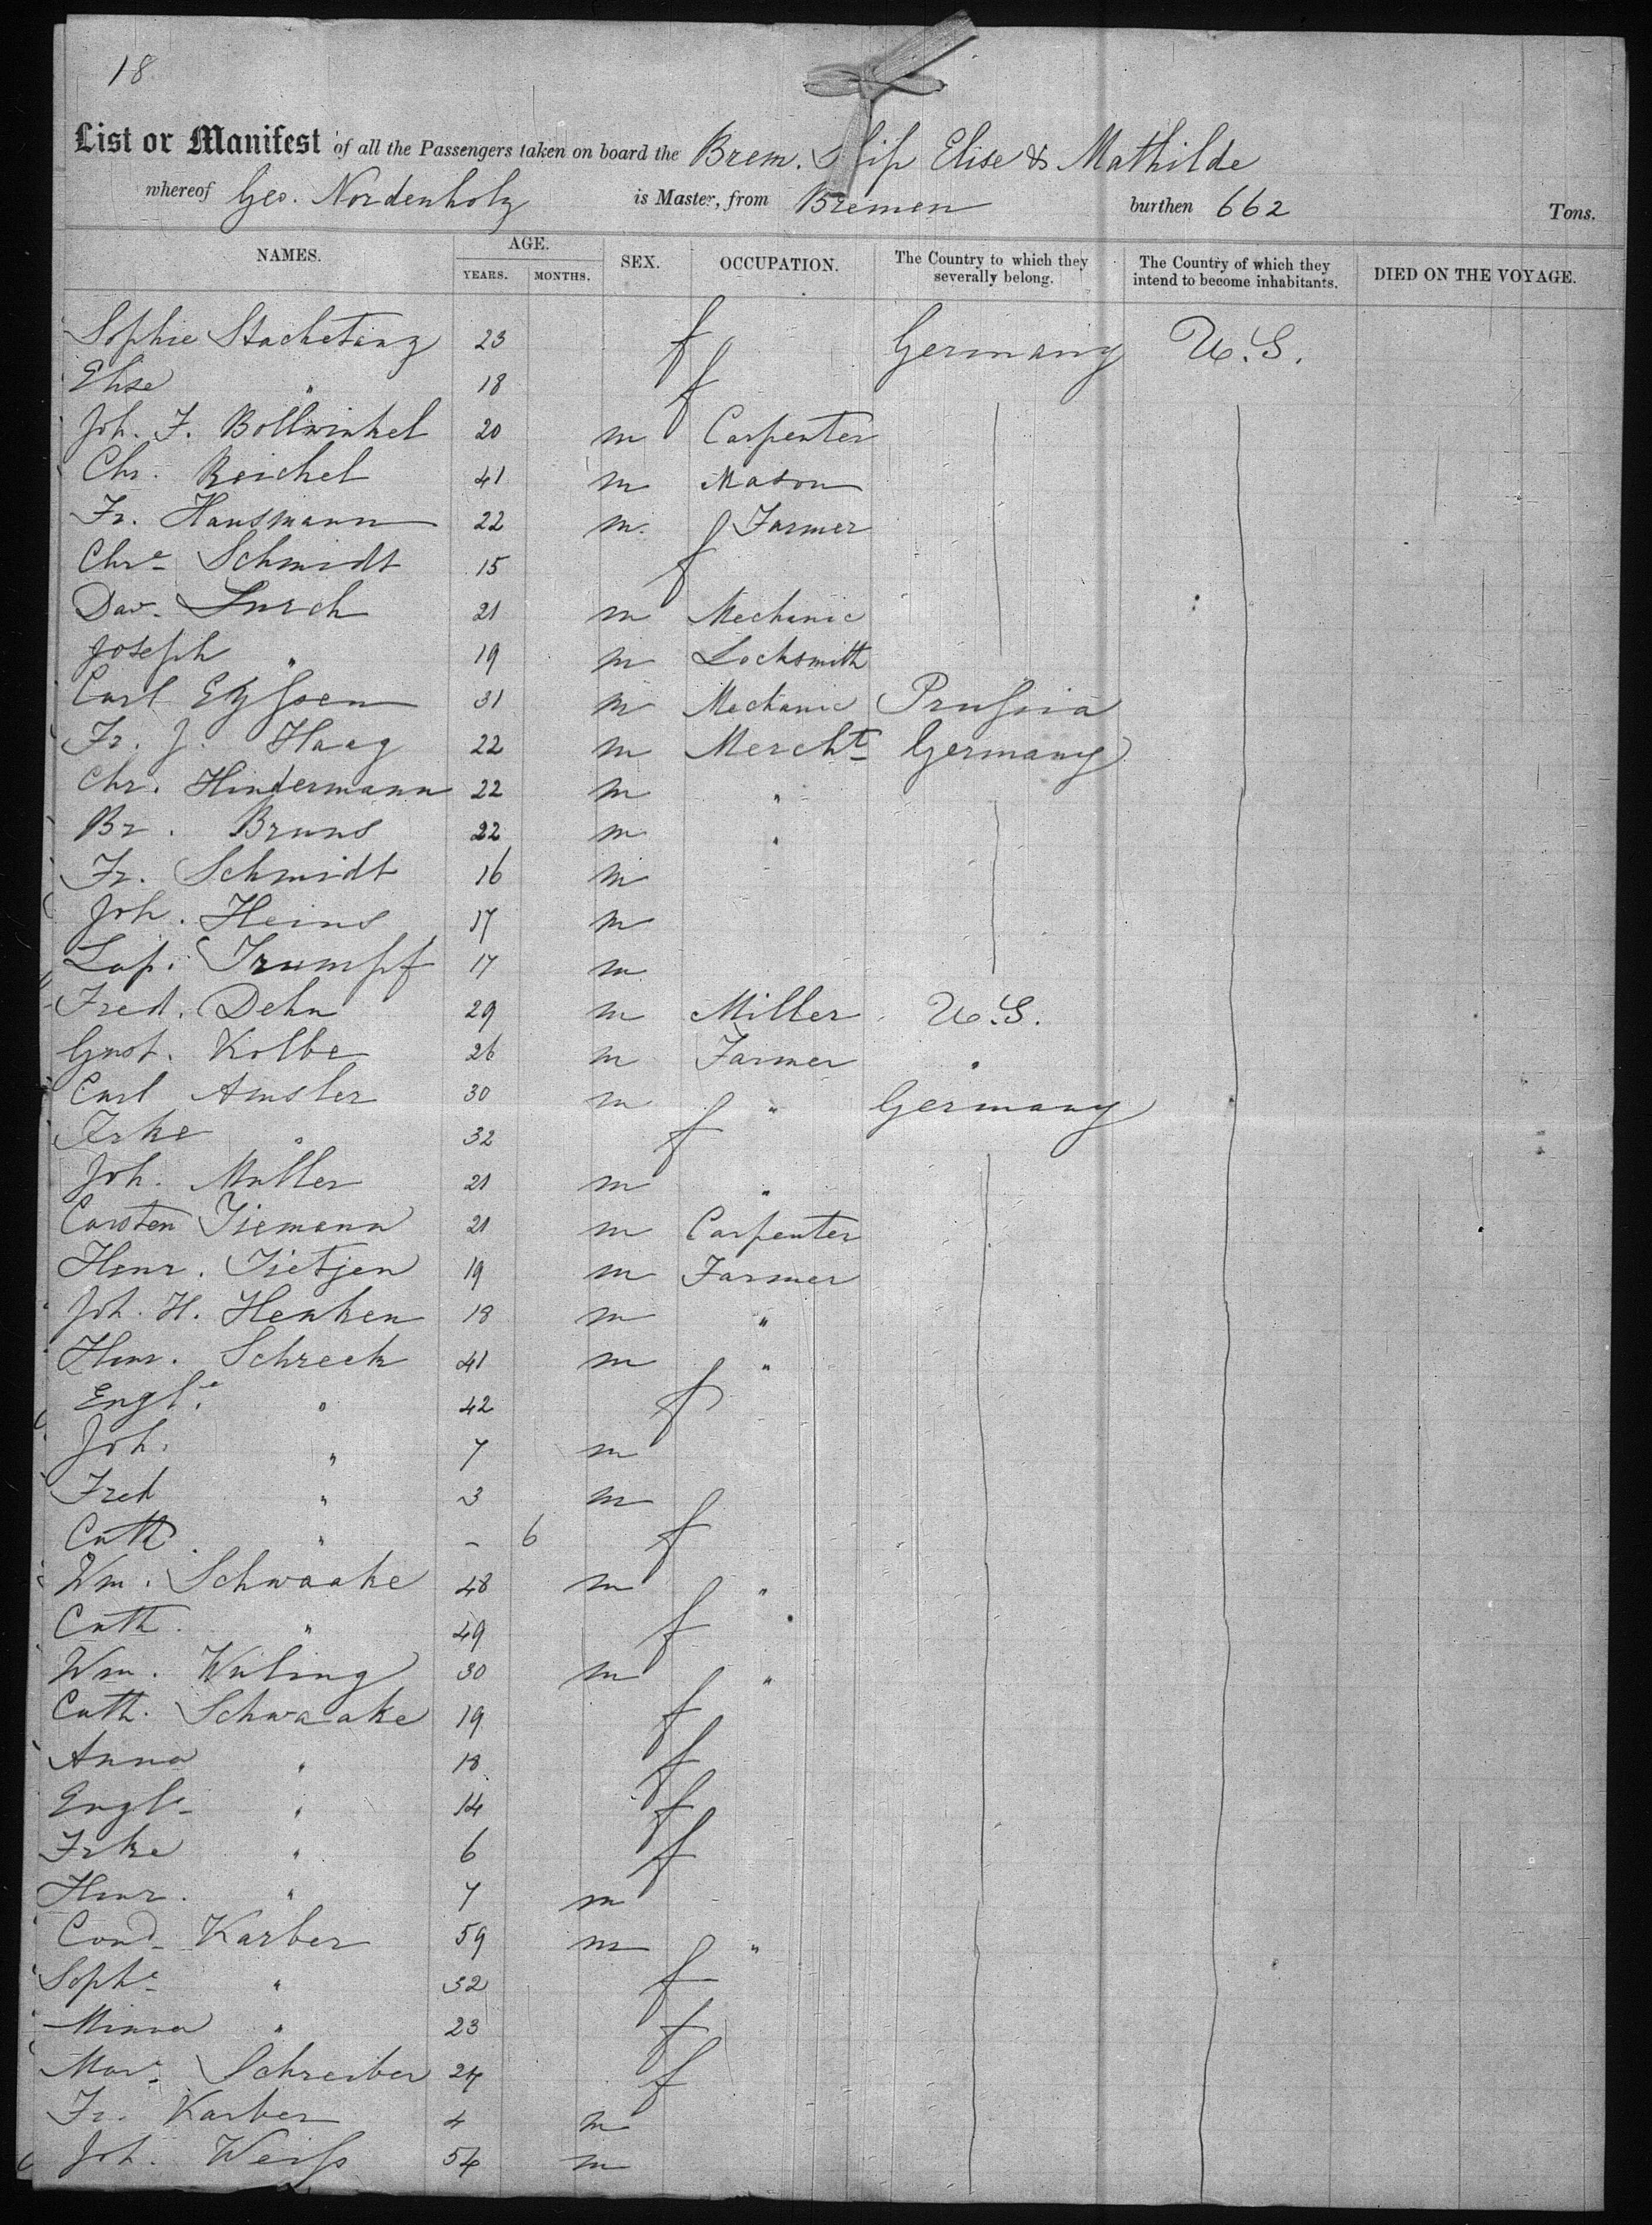 18
List or Manifest of all the Passengers taken on board the Brem. Ship Elise & Mathilde
whereof Geo. Nordenholz is Master, from Bremen burthen 662 Tons.
NAMES. AGE. YEARS. MONTHS. SEX. OCCUPATION. The Country to which they severally belong. The Country of which they intend to become inhabitants. DIED ON THE VOYAGE.
Sophie Stachetanz 23 f Germany U.S.
Elise " 18 f
Joh. F. Bollwinkel 20 m Carpenter
Chr. Reichel 41 m Mason
Fr. Hausmann 22 m. Farmer
Chre Schmidt 15 f
Dav. Lurch 21 m Mechanic
Joseph " 19 m Locksmith
Carl 31 m Mechanic Prussia
Fr. J. Haag 22 m Mercht Germany
Chr. Hindermann 22 m "
Br. Bruns 22 m "
Fr. Schmidt 16 m
Joh. Heins 17 m
Trumpf 17 m
Fred. Dehn 29 m Miller U.S.
Gust. Kolbe 26 m Farmer "
Carl Amsler 30 m " Germany
Frke " 32 f
Joh. Muller 21 m "
Carsten Tiemann 21 m Carpenter
Henr. Tietjen 19 m Farmer
Joh. H. Henken 18 m "
Henr. Schreck 41 m "
Engle " 42 f
Joh. " 7 m
Fred " 3 m
Cath. " - 6 f
Wm. Schwaake 48 m "
Cath. " 49 f
Wm. Wuling 30 m "
Cath. Schwaake 19 f
Anna " 18 f
Engle " 14 f
Frke " 6 f
Henr. " 7 m
Cond Karber 59 m "
Sophe " 32 f
Minna " 23 f
Mar. Schreiber 24 f
Fr. Karber 4 m
Joh. Weiss 54 m